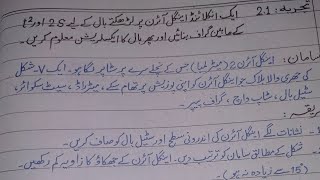 تجربہ: 2.1 ایک انکلائنڈ اینگل آئرن پر لڑھکتی بال کے لیے 2S اور t²
کے مابین گراف بنائیں اور پھر بال کا ایکسلریشن معلوم کریں۔
سامان: اینگل آئرن 2 (میٹر لمبا) جس کے نچلے سرے پر سٹاپر لگا ہو۔ ایک V شکل
کی جھری والا بلاک جو اینگل آئرن کو اپنی پوزیشن پر تھامے رکھے، میٹر راڈ، سیٹ سکوائر،
سٹیل بال، سٹاپ واچ، گراف پیپر۔
طریقہ:
1۔ نشانات لگے اینگل آئرن کی اندرونی سطح اور سٹیل بال کو صاف کریں۔
شکل کے مطابق سامان کو ترتیب دیں۔ اینگل آئرن کے جھکاؤ کا زاویہ کم رکھیں۔
(15° سے زیادہ نہ ہو)